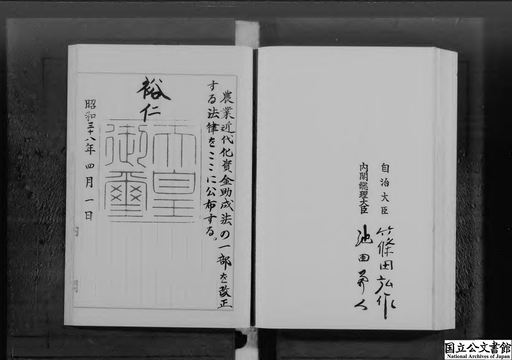 農業近代化資金助成法の一部を改正
する法律をここに公布する。
裕仁
天皇
御璽
昭和三十八年四月一日
内閣総理大臣 池田勇人
自治大臣 篠田弘作
国立公文書館
National Archives of Japan